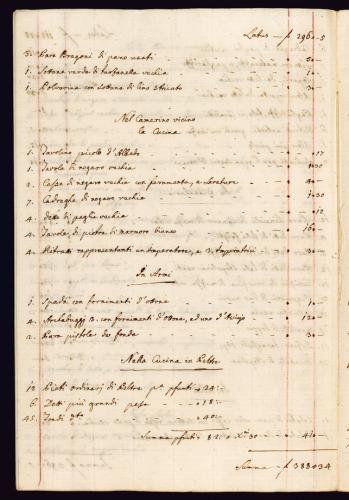 Latus — f 2960-5
3. Para Bragoni di pano usati - - - 30 -
1. Sottana verde di tarfanella vechia - 10 -
1. Polverina con Sottana di lino - 30 -
Nel Camerino vicino
la Cucina
1. Tavolino picolo d'Albedo - - - 17
1. Tavola di nogaro vechia - - - 1-30
2. Casse di nogaro vechie con feramenta, e serature - - 40 -
7. Cadreghe di nogaro vechie - - - 1-30
4. dette di paglia vechie - - - 12
4. Tavole, di pietra di marmoro bianco - - 160 -
4. Ritratti rappresentanti un Imperatore, e 3. Imperatrici - 30 -
In Armi
1. Spada con fornimenti d'otone - - - 10 -
4. Archebuggi 3. con fornimenti d'otone, ed uno d' - 120 -
2. Para pistole da fonda - - - 30 -
Nella Cucina in Peltro
12. Piatti ordinarij di Peltro
6. Detti più grandi pesa - 18:-
45. Tondi - 40:-
Summa
Summa — f 3880 34